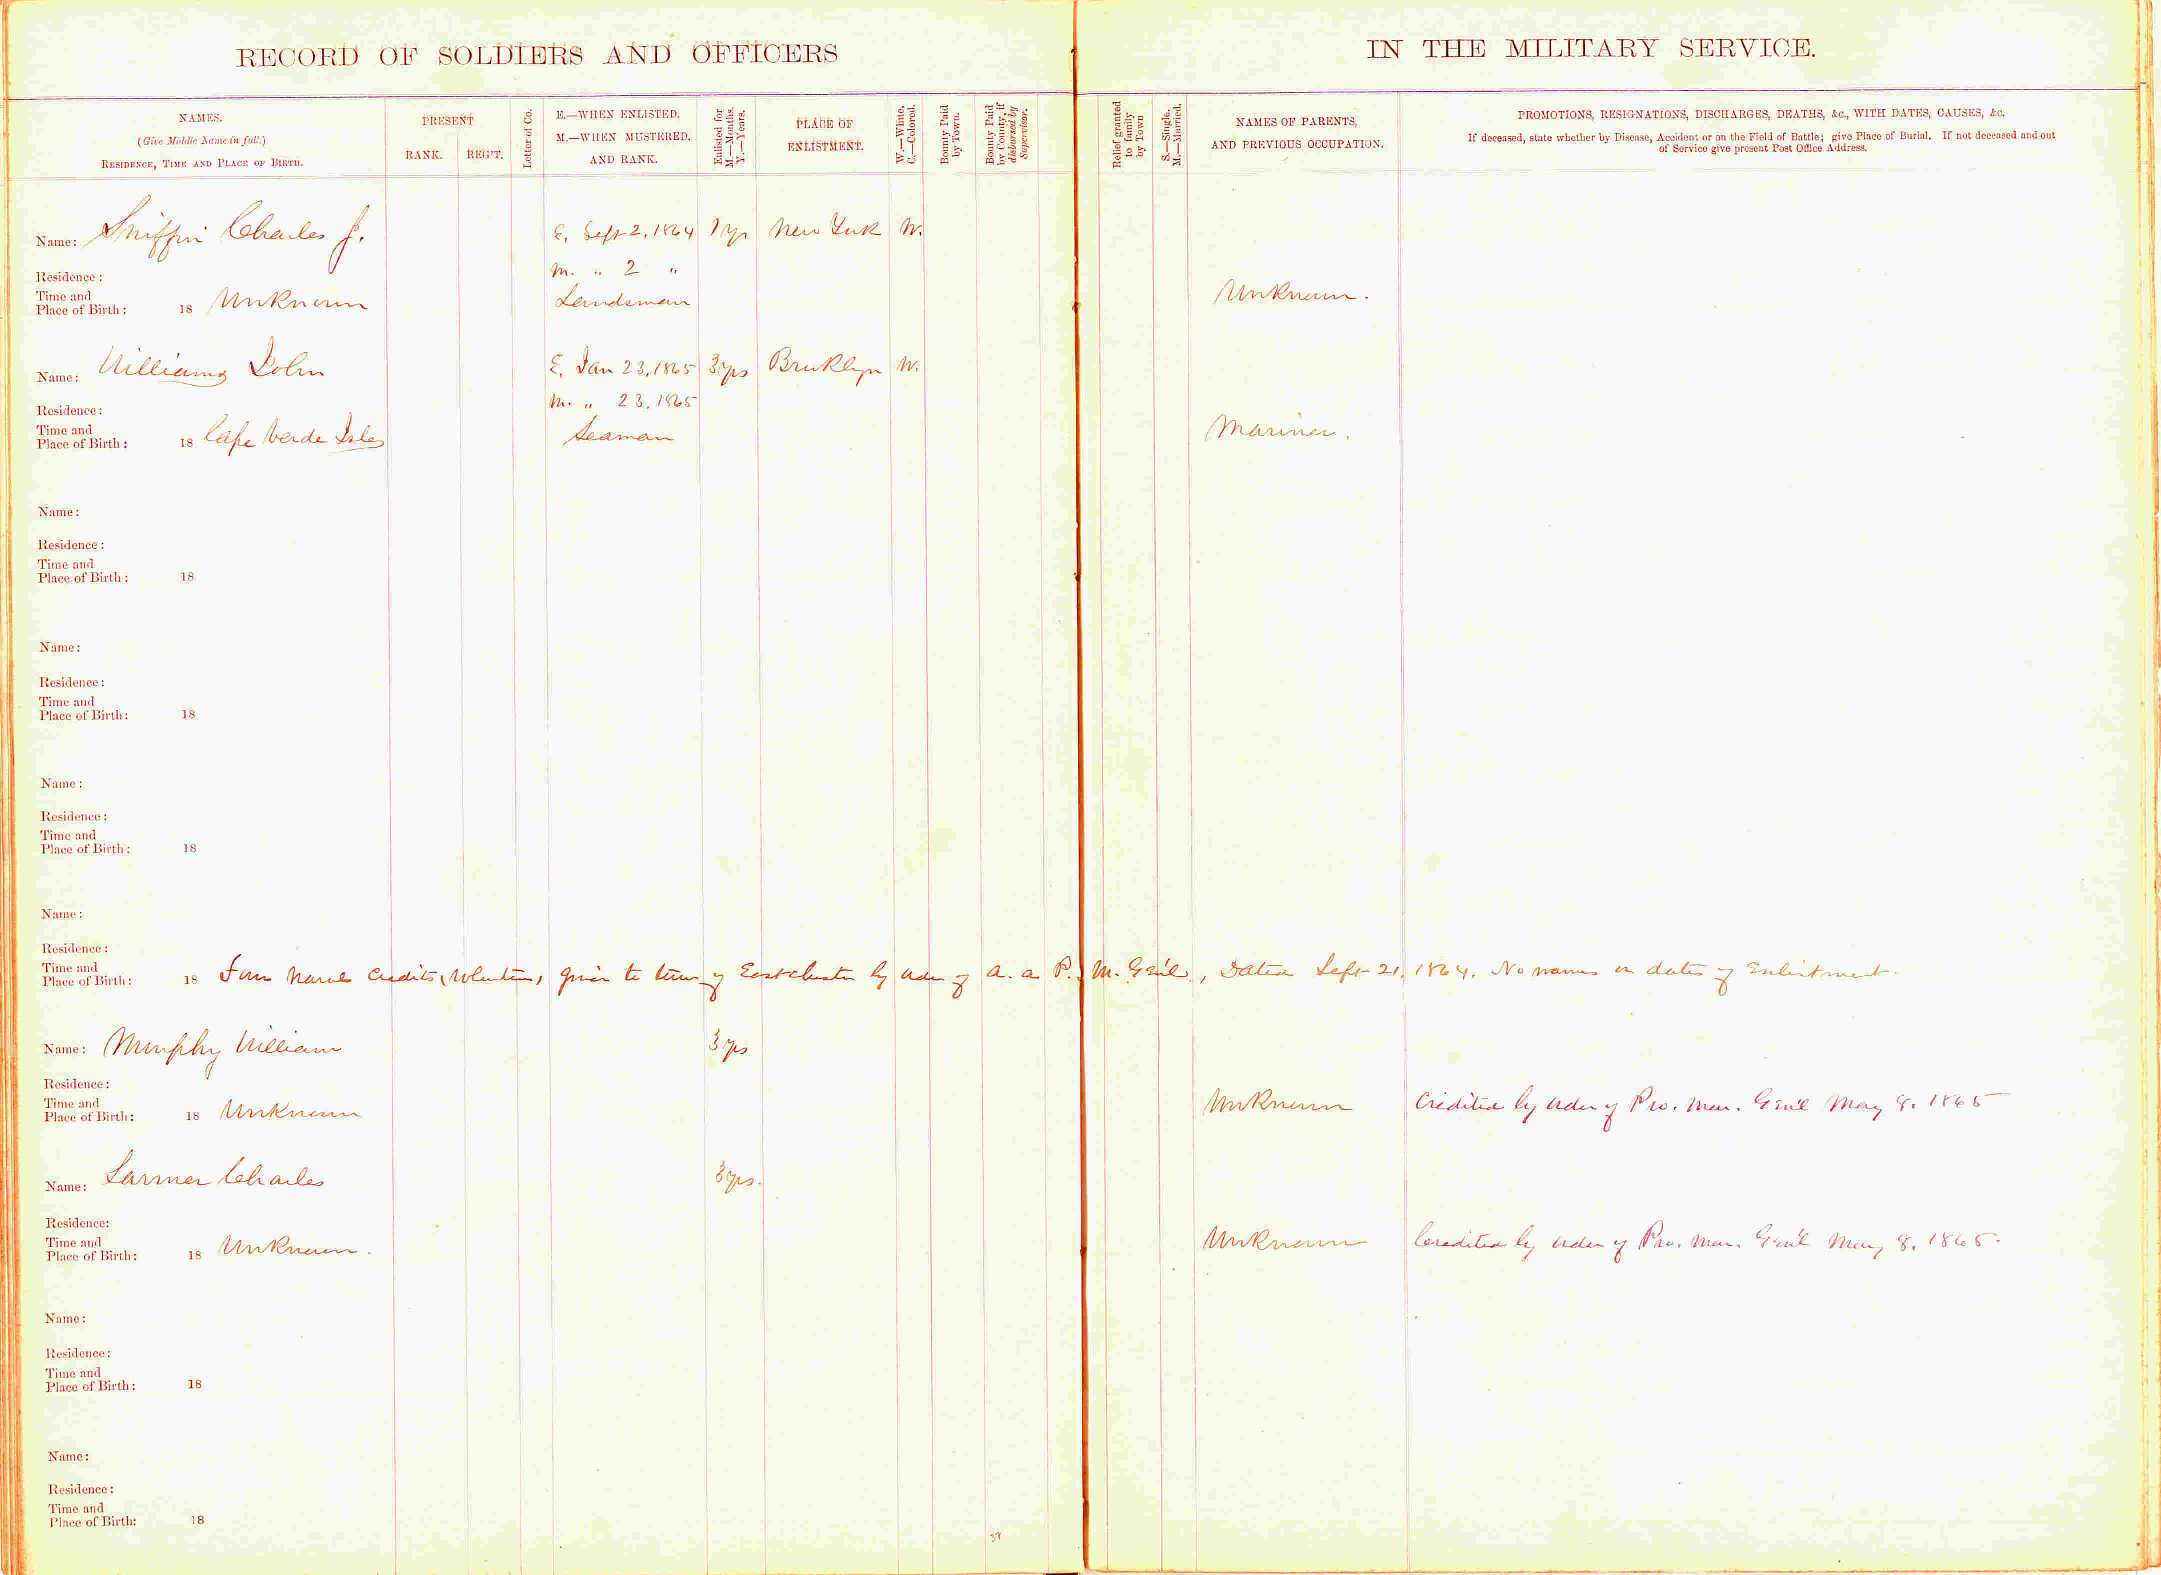 RECORD OF SOLDIERS AND OFFICERS IN THE MILITARY SERVICE.
NAMES.
(Give Middle Name in full.)
RESIDENCE, TIME AND PLACE OF BIRTH.
PRESENT
RANK. REG'T.
Letter of Co.
E.—WHEN ENLISTED.
M.—WHEN MUSTERED.
AND RANK.
Enlisted for
M.—Months.
Y.—Years.
PLACE OF
ENLISTMENT.
W.—White.
C.—Colored.
Bounty Paid
by Town.
Bounty Paid
by County, if
disbursed by
Supervisor.
Relief granted
to family
by Town
S.—Single.
M.—Married.
NAMES OF PARENTS,
AND PREVIOUS OCCUPATION.
PROMOTIONS, RESIGNATIONS, DISCHARGES, DEATHS, &c., WITH DATES, CAUSES, &c.
If deceased, state whether by Disease, Accident or on the Field of Battle; give Place of Burial. If not deceased and out
of Service give present Post Office Address.
Name: Sniffin Charles J. E. Sept 2, 1864 1 yr New York W.
Residence: M. " 2 "
Time and
Place of Birth: 18 Unknown Landsman Unknown.
Name: Williams John E. Jan 23, 1865 3 yrs Brooklyn W.
Residence: M. " 23, 1865
Time and
Place of Birth: 18 Cape Verde Isles Seaman Mariner.
Name:
Residence:
Time and
Place of Birth: 18
Name:
Residence:
Time and
Place of Birth: 18
Name:
Residence:
Time and
Place of Birth: 18
Name:
Residence:
Time and
Place of Birth: 18 Four Naval Credits, Volunteers, given to town of Eastchester by order of A. A. P. M. Gen'l., Dated Sept 21, 1864. No names or dates of Enlistment.
Name: Murphy William 3 yrs
Residence:
Time and
Place of Birth: 18 Unknown Unknown Credited by order of Pro. Mar. Gen'l May 8, 1865
Name: Larmer Charles 3 yrs.
Residence:
Time and
Place of Birth: 18 Unknown. Unknown Credited by order of Pro. Mar. Gen'l May 8, 1865.
Name:
Residence:
Time and
Place of Birth: 18
Name:
Residence:
Time and
Place of Birth: 18